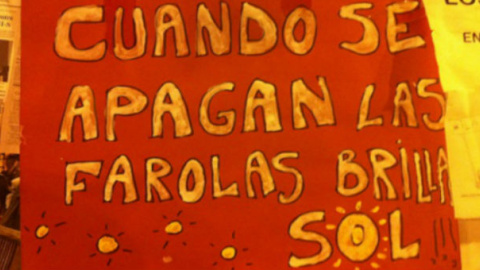 CUANDO SE
APAGAN LAS
FAROLAS BRILLA
SOL!!
EN